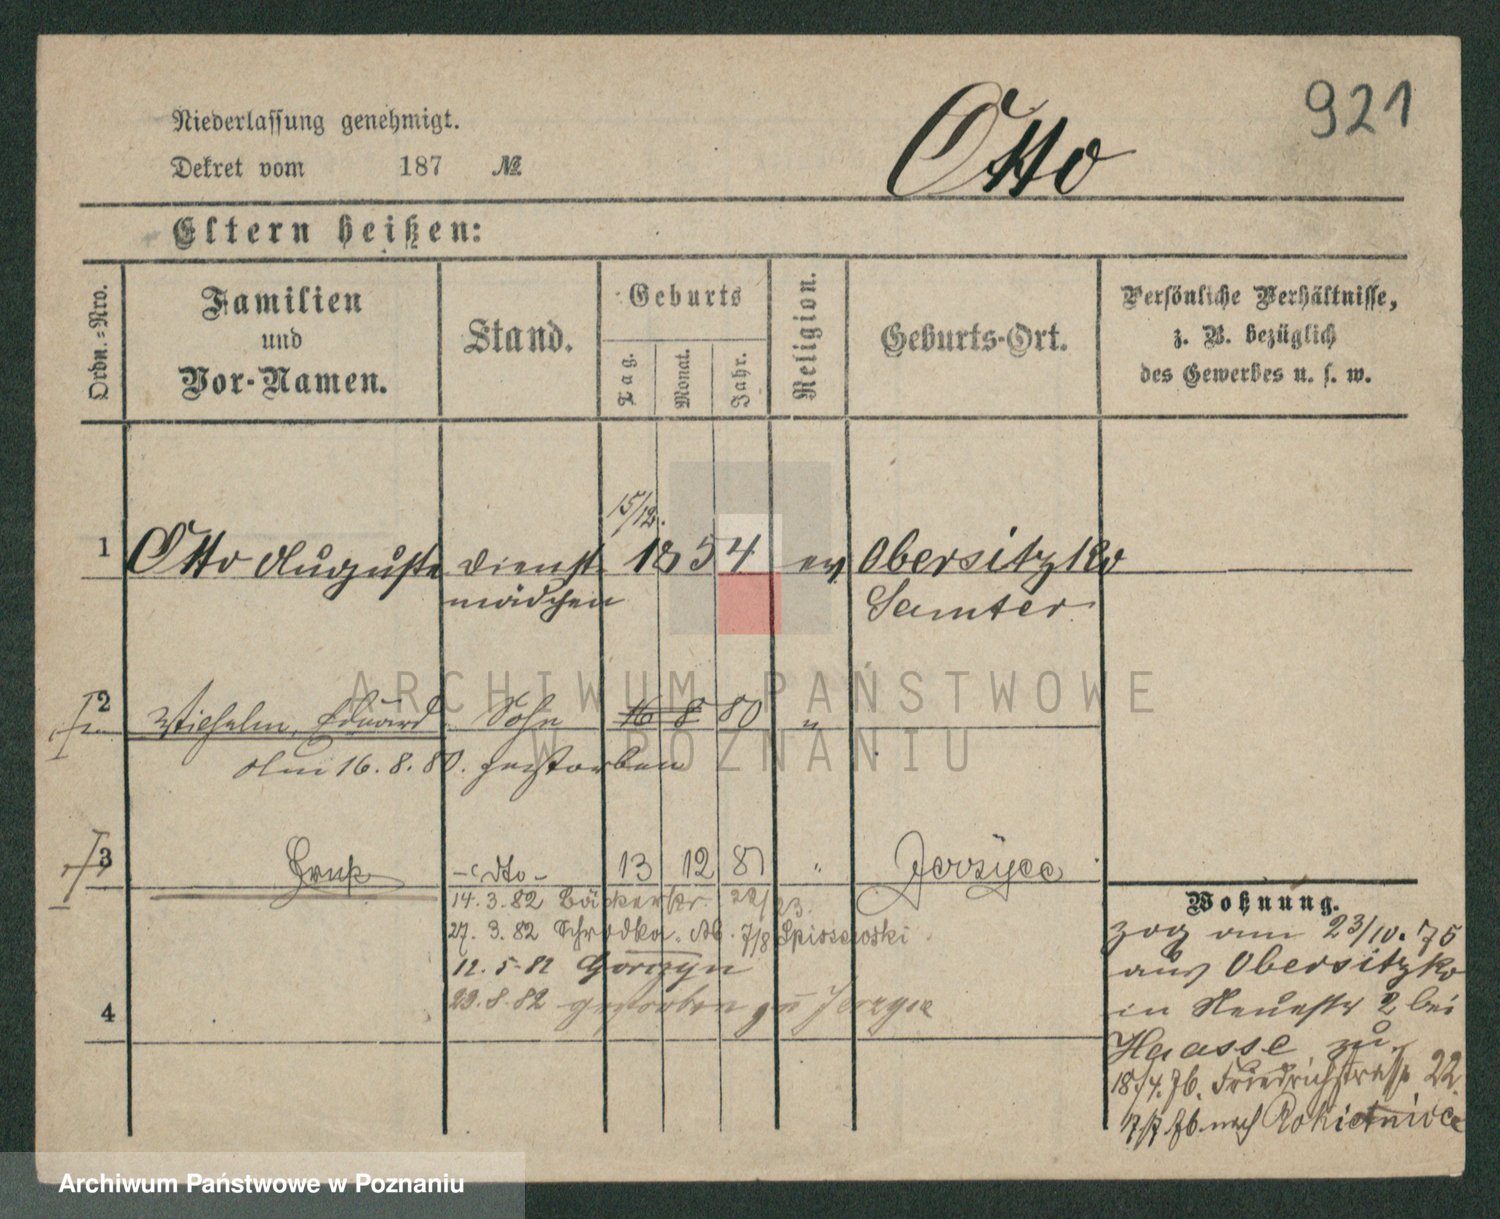 921
Niederlassung genehmigt.
Otto
Dekret vom 187 №
Eltern heißen:
Ordn.-Nro.
Familien
und
Vor-Namen.
Stand.
Geburts
Tag.
Monat.
Jahr.
Religion.
Geburts-Ort.
Persönliche Verhältnisse,
z. B. bezüglich
des Gewerbes u. s. w.
15/12.
1 Otto Auguste Dienst 1854 ev Obersitzko
mädchen Samter
2 Wilhelm, Eduard Sohn 16 8 80 "
Am 16. 8. 80. gestorben
3 -dto- 13 12 81 " Jerzyce
14. 3. 82 Bäckerstr. 22/23.
27. 3. 82 Schrodka. 7/8
12. 5. 82 Gorczyn
4 23. 8. 82 gestorben zu Jerzyce
Wohnung.
zog am 23/10. 75
aus Obersitzko
in Neuestr 2 bei
Haasse zu.
18/4. 76. Friedrichstrasse 22
nach Rokietnice
ARCHIWUM PAŃSTWOWE
W POZNANIU
Archiwum Państwowe w Poznaniu